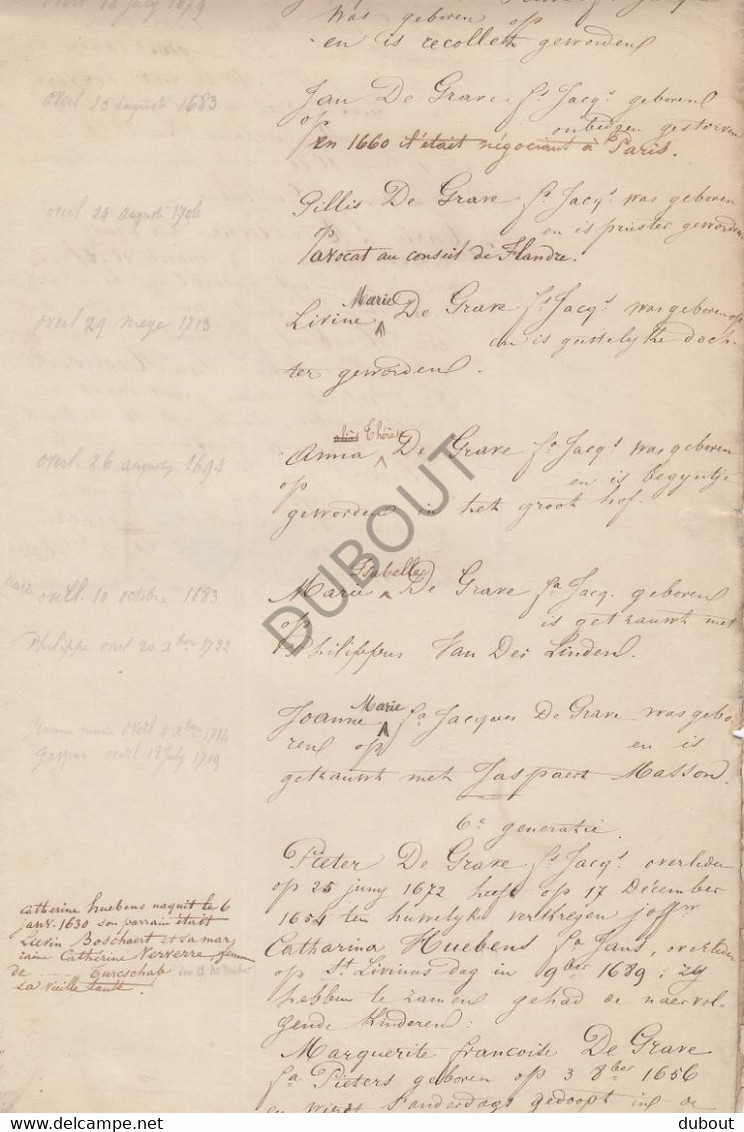 overl 10 july 1679
was geboren op
en is recollett geworden
overl 25 augusti 1683
Jan De Grave fs Jacqs geboren
op ontbeyen gestorven
en 1660 il était négociant à Paris.
overl 24 augusti 1706
Gillis De Grave fs Jacqs was geboren
op en is priester geworden
avocat au conseil de Flandre.
overl 29 meye 1713
Marie
Livine ^ De Grave fa Jacqs was geboren op
en is geestelyke doch-
ter geworden.
overl. 26 augusty 1694
aliàs Thérèse
Anna ^ De Grave fa Jacqs was geboren
op en is begyntje
geworden in het groot hof.
Marie overl. 10 octobre 1683
Isabelle
Marie ^ De Grave fa Jacq. geboren
op is getrauwt met
Philippe overl 20 Xber 1722
Philippus Van Der Linden.
Marie
Joanne ^ fa Jacques De Grave was gebo
Jeanne marie overl 4 Xber 1724
ren op en is
Gaspar overl 18 july 1719
getrauwt met Jaspaert Masson.
6e generatie.
Pieter De Grave fs Jacqs overleden
op 25 juny 1672 heeft op 17 Décember
1654 ten huwelyke verkregen joffw
Catharina Huebens fa Jans, overleden
op St Livinus dag in 9ber 1689: zy
hebben te zamen gehad de naervol-
gende kinderen:
catherine huebens naquit le 6
janv. 1630 son parrain était
Lievin Boschaert et sa mar
raine Catherine Ververre femme
de ..... Turcschap den 12 november
sa vieille tante.
Marguerite francoise De Grave
fa Pieters geboren op 3 8ber 1656
en wierd s'anderdags gedoopt in de
DUBOUT
dubout
dubout